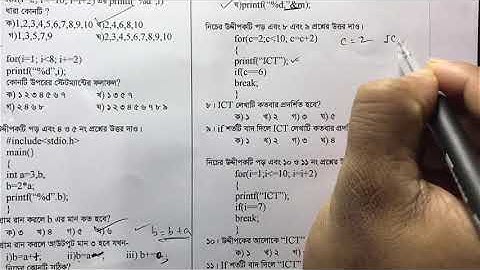 ধারা কোনটি ?
ক)1,2,3,4,5,6,7,8,9,10 খ)2,4,6,8,10
গ)1,3,5,7,9 ঘ)2,3,4,5,6,7,8,9,10
for(i=1; i<8; i+=2)
printf("%d",i);
কোনটি উপরের স্টেটমেন্টের ফলাফল?
ক) ১ ২ ৩ ৪ ৫ ৬ ৭ খ) ১ ৩ ৫ ৭
গ) ২ ৪ ৬ ৮ ঘ) ১ ২ ৩ ৪ ৫ ৬ ৭ ৮
উদ্দীপকটি পড় এবং ৪ ও ৫ নং প্রশ্নের উত্তর দাও।
#include<stdio.h>
main()
{
int a=3,b,
b=2*a;
printf("%d".b);
}
রান করলে b এর মান কত হবে?
ক) ৩ খ) ৪ গ) ৫ ঘ) ৬
b=b+a
রান করলে আউটপুট মান ৩ হবে যখন-
ঘ)printf("%d,"&m);
নিচের উদ্দীপকটি পড় এবং ৮ ও ৯ প্রশ্নের উত্তর দাও।
for(c=2;c<10, c=c+2)
c=2
{
printf("ICT");
if(c==6)
break;
}
৮। ICT লেখাটি কতবার প্রদর্শিত হবে?
ক) ১ খ) ২ গ) ৩ ঘ) ৫
৯। if শর্তটি বাদ দিলে ICT লেখাটি কতবার
ক) ১ খ) ২ গ) ৩ ঘ) ৪
নিচের উদ্দীপকটি পড় এবং ১০ ও ১১ নং প্রশ্নের উত্তর
for(i=1;i<=10; i=i+2)
{
printf("ICT");
if(i==7)
break;
}
১০। উদ্দীপকের আলোকে "ICT"
ক) ১ খ) ২
১১। if শর্তটি বাদ দিলে "ICT"